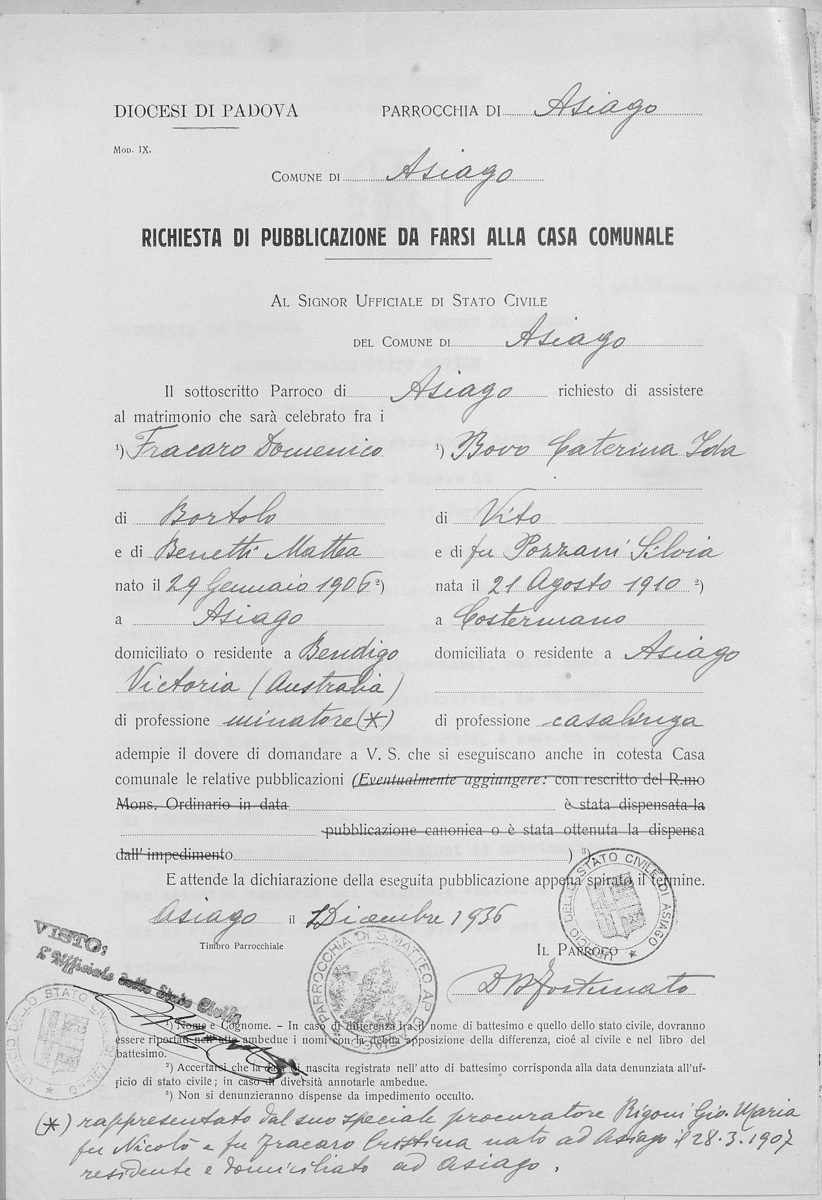 DIOCESI DI PADOVA PARROCCHIA DI Asiago
Mod. IX.
Comune di Asiago
RICHIESTA DI PUBBLICAZIONE DA FARSI ALLA CASA COMUNALE
Al Signor Ufficiale di Stato Civile
del Comune di Asiago
Il sottoscritto Parroco di Asiago richiesto di assistere
al matrimonio che sarà celebrato fra i
¹) Fracaro Domenico ¹) Bovo Caterina Ida
di Bortolo di Vito
e di Benetti Mattea e di fu Pozzani Silvia
nato il 29 Gennaio 1906 ²) nata il 21 Agosto 1910 ²)
a Asiago a Costermano
domiciliato o residente a Bendigo domiciliata o residente a Asiago
Victoria (Australia)
di professione minatore (*) di professione casalinga
adempie il dovere di domandare a V. S. che si eseguiscano anche in cotesta Casa
comunale le relative pubblicazioni (Eventualmente aggiungere: con rescritto del R.mo
Mons. Ordinario in data è stata dispensata la
pubblicazione canonica o è stata ottenuta la dispensa
dall'impedimento ) ³)
E attende la dichiarazione della eseguita pubblicazione appena spirato il termine.
Asiago il Dicembre 1936
Timbro Parrocchiale IL PARROCO
Fortunato
UFFICIO DELLO STATO CIVILE DI ASIAGO
PARROCCHIA DI S. MATTEO AP. ASIAGO
VISTO:
L'Ufficiale dello Stato Civile
UFFICIO DELLO STATO CIVILE DI ASIAGO
¹) Nome e Cognome. - In caso di differenza fra il nome di battesimo e quello dello stato civile, dovranno
essere riportati nell'atto ambedue i nomi con la debita apposizione della differenza, cioé al civile e nel libro del
battesimo.
²) Accertarsi che la data di nascita registrata nell'atto di battesimo corrisponda alla data denunziata all'uf-
ficio di stato civile; in caso di diversità annotarle ambedue.
³) Non si denunzieranno dispense da impedimento occulto.
(*) rappresentato dal suo speciale procuratore Rigoni Gio. Maria
fu Nicolò e fu Fracaro Cristina nato ad Asiago il 28.3.1907
residente e domiciliato ad Asiago.